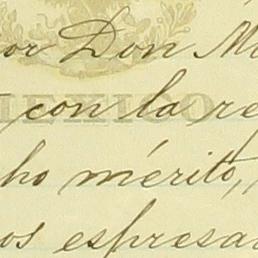 or Don M
con la re
MEXICO
ho mérito,
os espresa